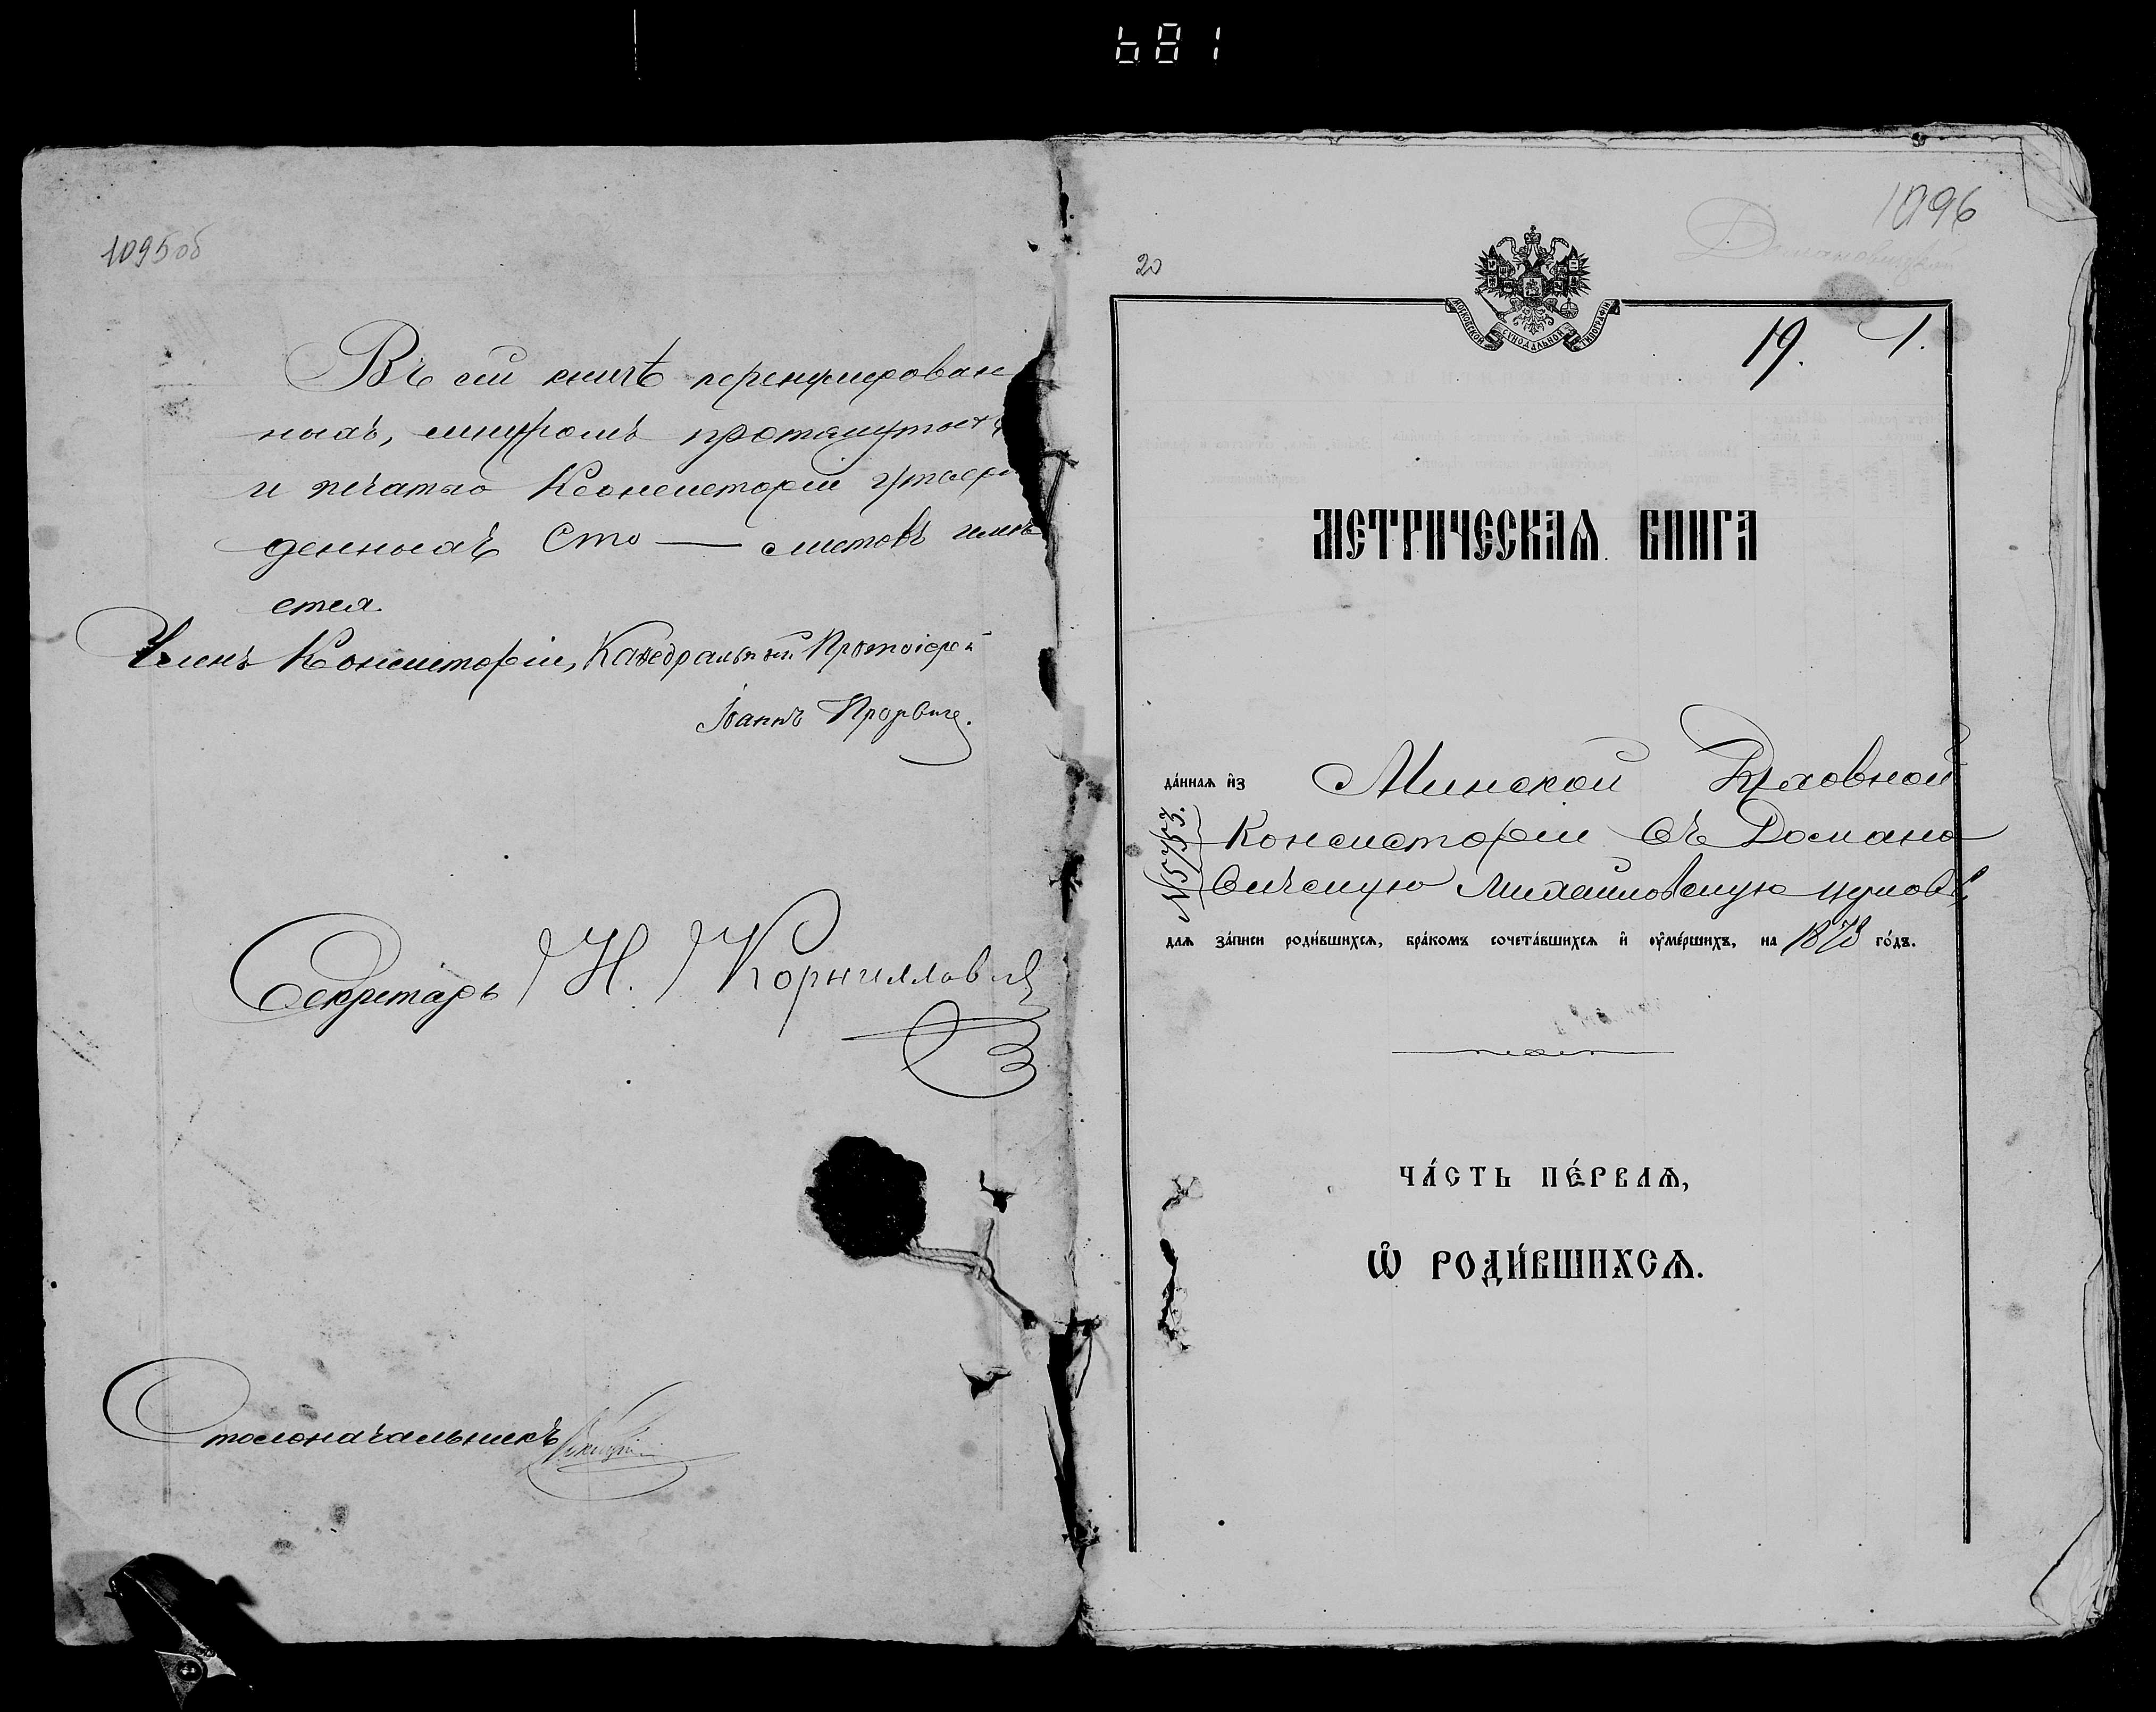 681
1095об
Въ сей книгѣ перенумерован
ныхъ, шнуромъ протянутыхъ
и печатью Консисторіи утвер
денныхъ Сто — листовъ имѣ
ется.
Членъ Консисторіи, Каѳедральный Протоіерей
Іоаннъ
Секретарь Н. Корниллович
Столоначальникъ
1096
20
МОСКОВСКОЙ СѴНОДАЛЬНОЙ ТИПОГРАФІИ
19. 1.
МЕТРИЧЕСКАѦ КНИГА
да́ннаѧ и҆з Минской Духовной
Консисторіи въ Домано
вичскую Михайловскую церковь,
№ 5753.
длѧ за́писи роди́вшихсѧ, бра́комъ сочета́вшихсѧ и҆ ᲂу҆ме́ршихъ, на 1873 го́дъ.
ЧА́СТЬ ПЕ́РВАѦ,
Ѽ РОДИ́ВШИХСѦ.